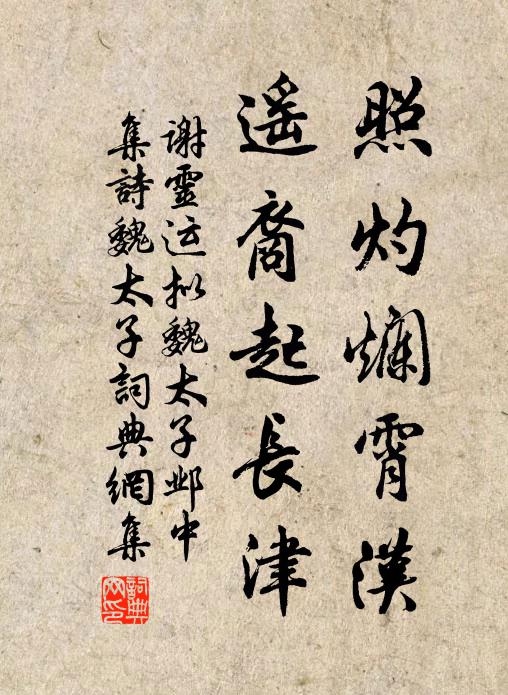 照灼爛霄漢
遥裔起長津
謝靈运拟魏太子邺中
集詩魏太子詞典網集
詞典网印